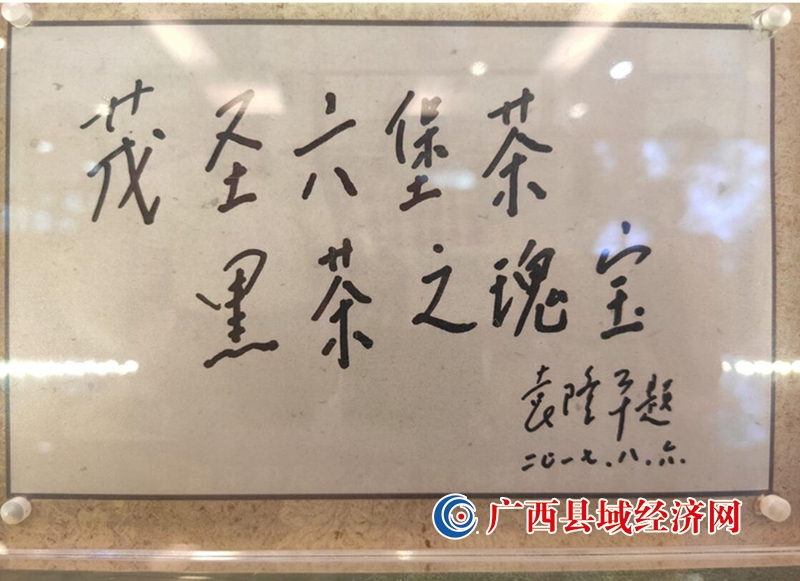 茂圣六堡茶
黑茶之瑰宝
袁隆平题
二〇一七.八.六.
广西县域经济网